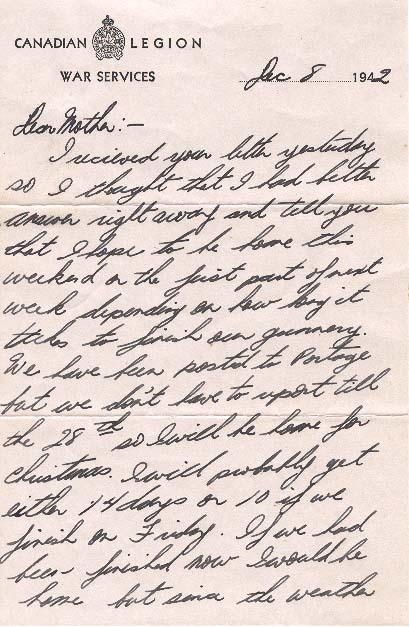 CANADIAN LEGION
WAR SERVICES
Dec 8 1942
Dear Mother:-
I recieved your letter yesterday
so I thought that I had better
answer right away and tell you
that I hope to be home this
weekend or the first part of next
week depending on how long it
takes to finish our gunnery.
We have been posted to Portage
but we don't have to report till
the 28th so I will be home for
christmas. I will probably get
either 14 days or 10 if we
finish on Friday. If we had
been finished now I would be
home but since the weather